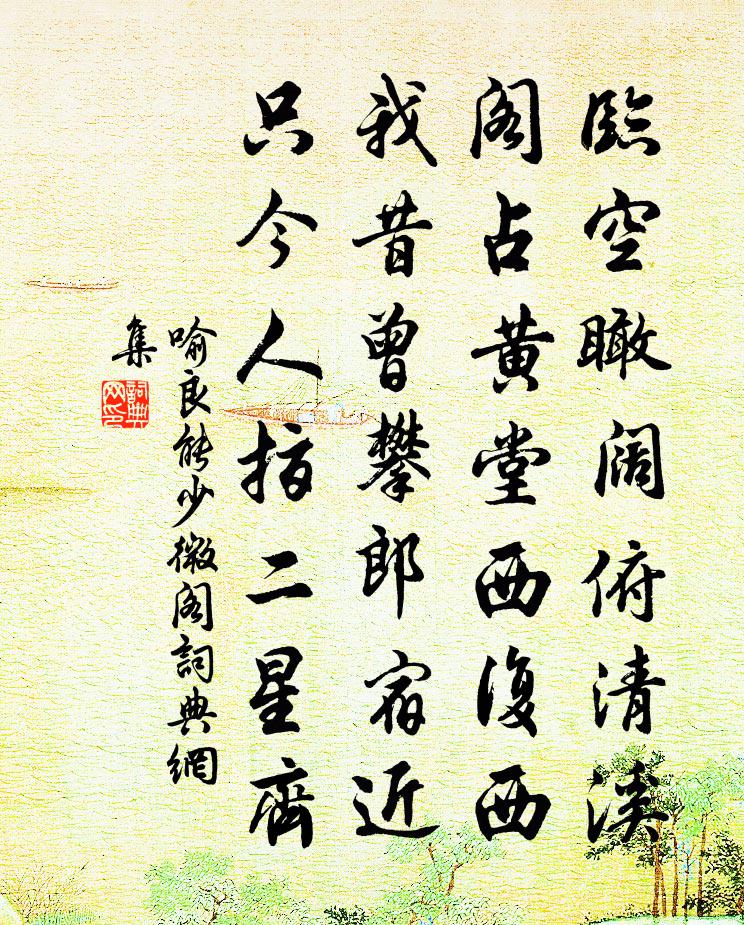 臨空瞰闊俯清溪
閣占黄堂西復西
我昔曾攀郎宿近
只今人指二星齊
喻良能少微閣詞典網
集
詞典
网印